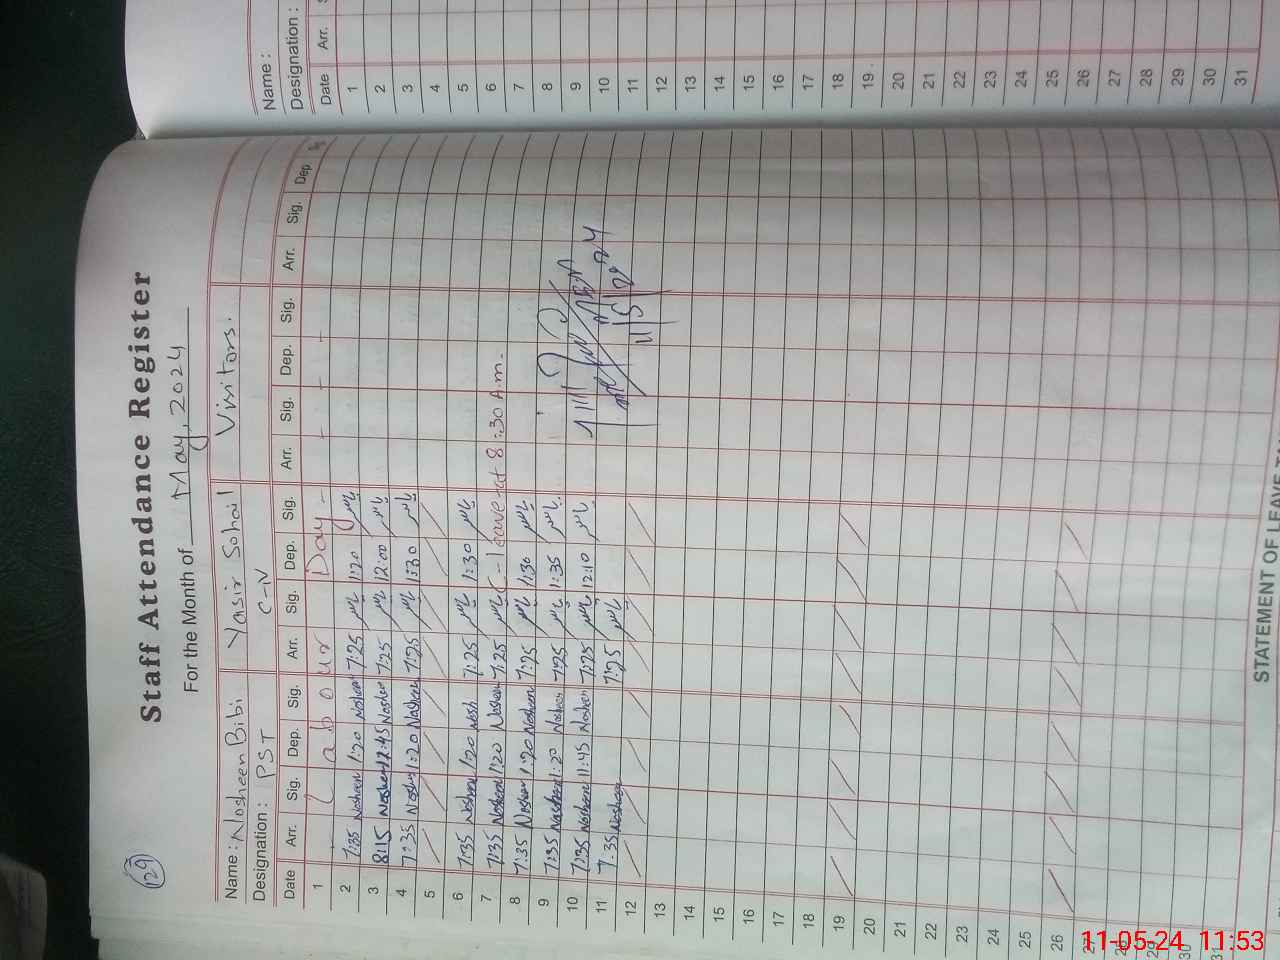 129
Staff Attendance Register
For the Month of May, 2024
Name: Nosheen Bibi Yasir Sohail Visitors.
Designation: PST C-IV
Date Arr. Sig. Dep. Sig. Arr. Sig. Dep. Sig. Arr. Sig. Dep. Sig. Arr. Sig. Dep.
1 Labour Day
2 7:35 Nosheen 1:20 Nosheen 7:25 1:20
3 8:15 Nosheen 12:45 Nosheen 7:25 12:00
4 7:35 Nosheen 1:20 Nosheen 7:25 1:30
5
6 7:35 Nosheen 1:20 Nosh 7:25 1:30
7 7:35 Nosheen 1:20 Nosheen 7:25 - leave at 8:30 A.m.
8 7:35 Nosheen 1:20 Nosheen 7:25 1:30
9 7:35 Nosheen 1:20 Nosheen 7:25 1:35
10 7:35 Nosheen 11:45 Nosheen 7:25 12:10
11 7:35 Nosheen 7:25
12
13
14
15
16
17
18
19
20
21
22
23
24
25
26
27
28
29
30
31
STATEMENT OF LEAVE
Name:
Designation:
Date Arr.
1
2
3
4
5
6
7
8
9
10
11
12
13
14
15
16
17
18
19
20
21
22
23
24
25
26
27
28
29
30
31
11-05-24 11:53